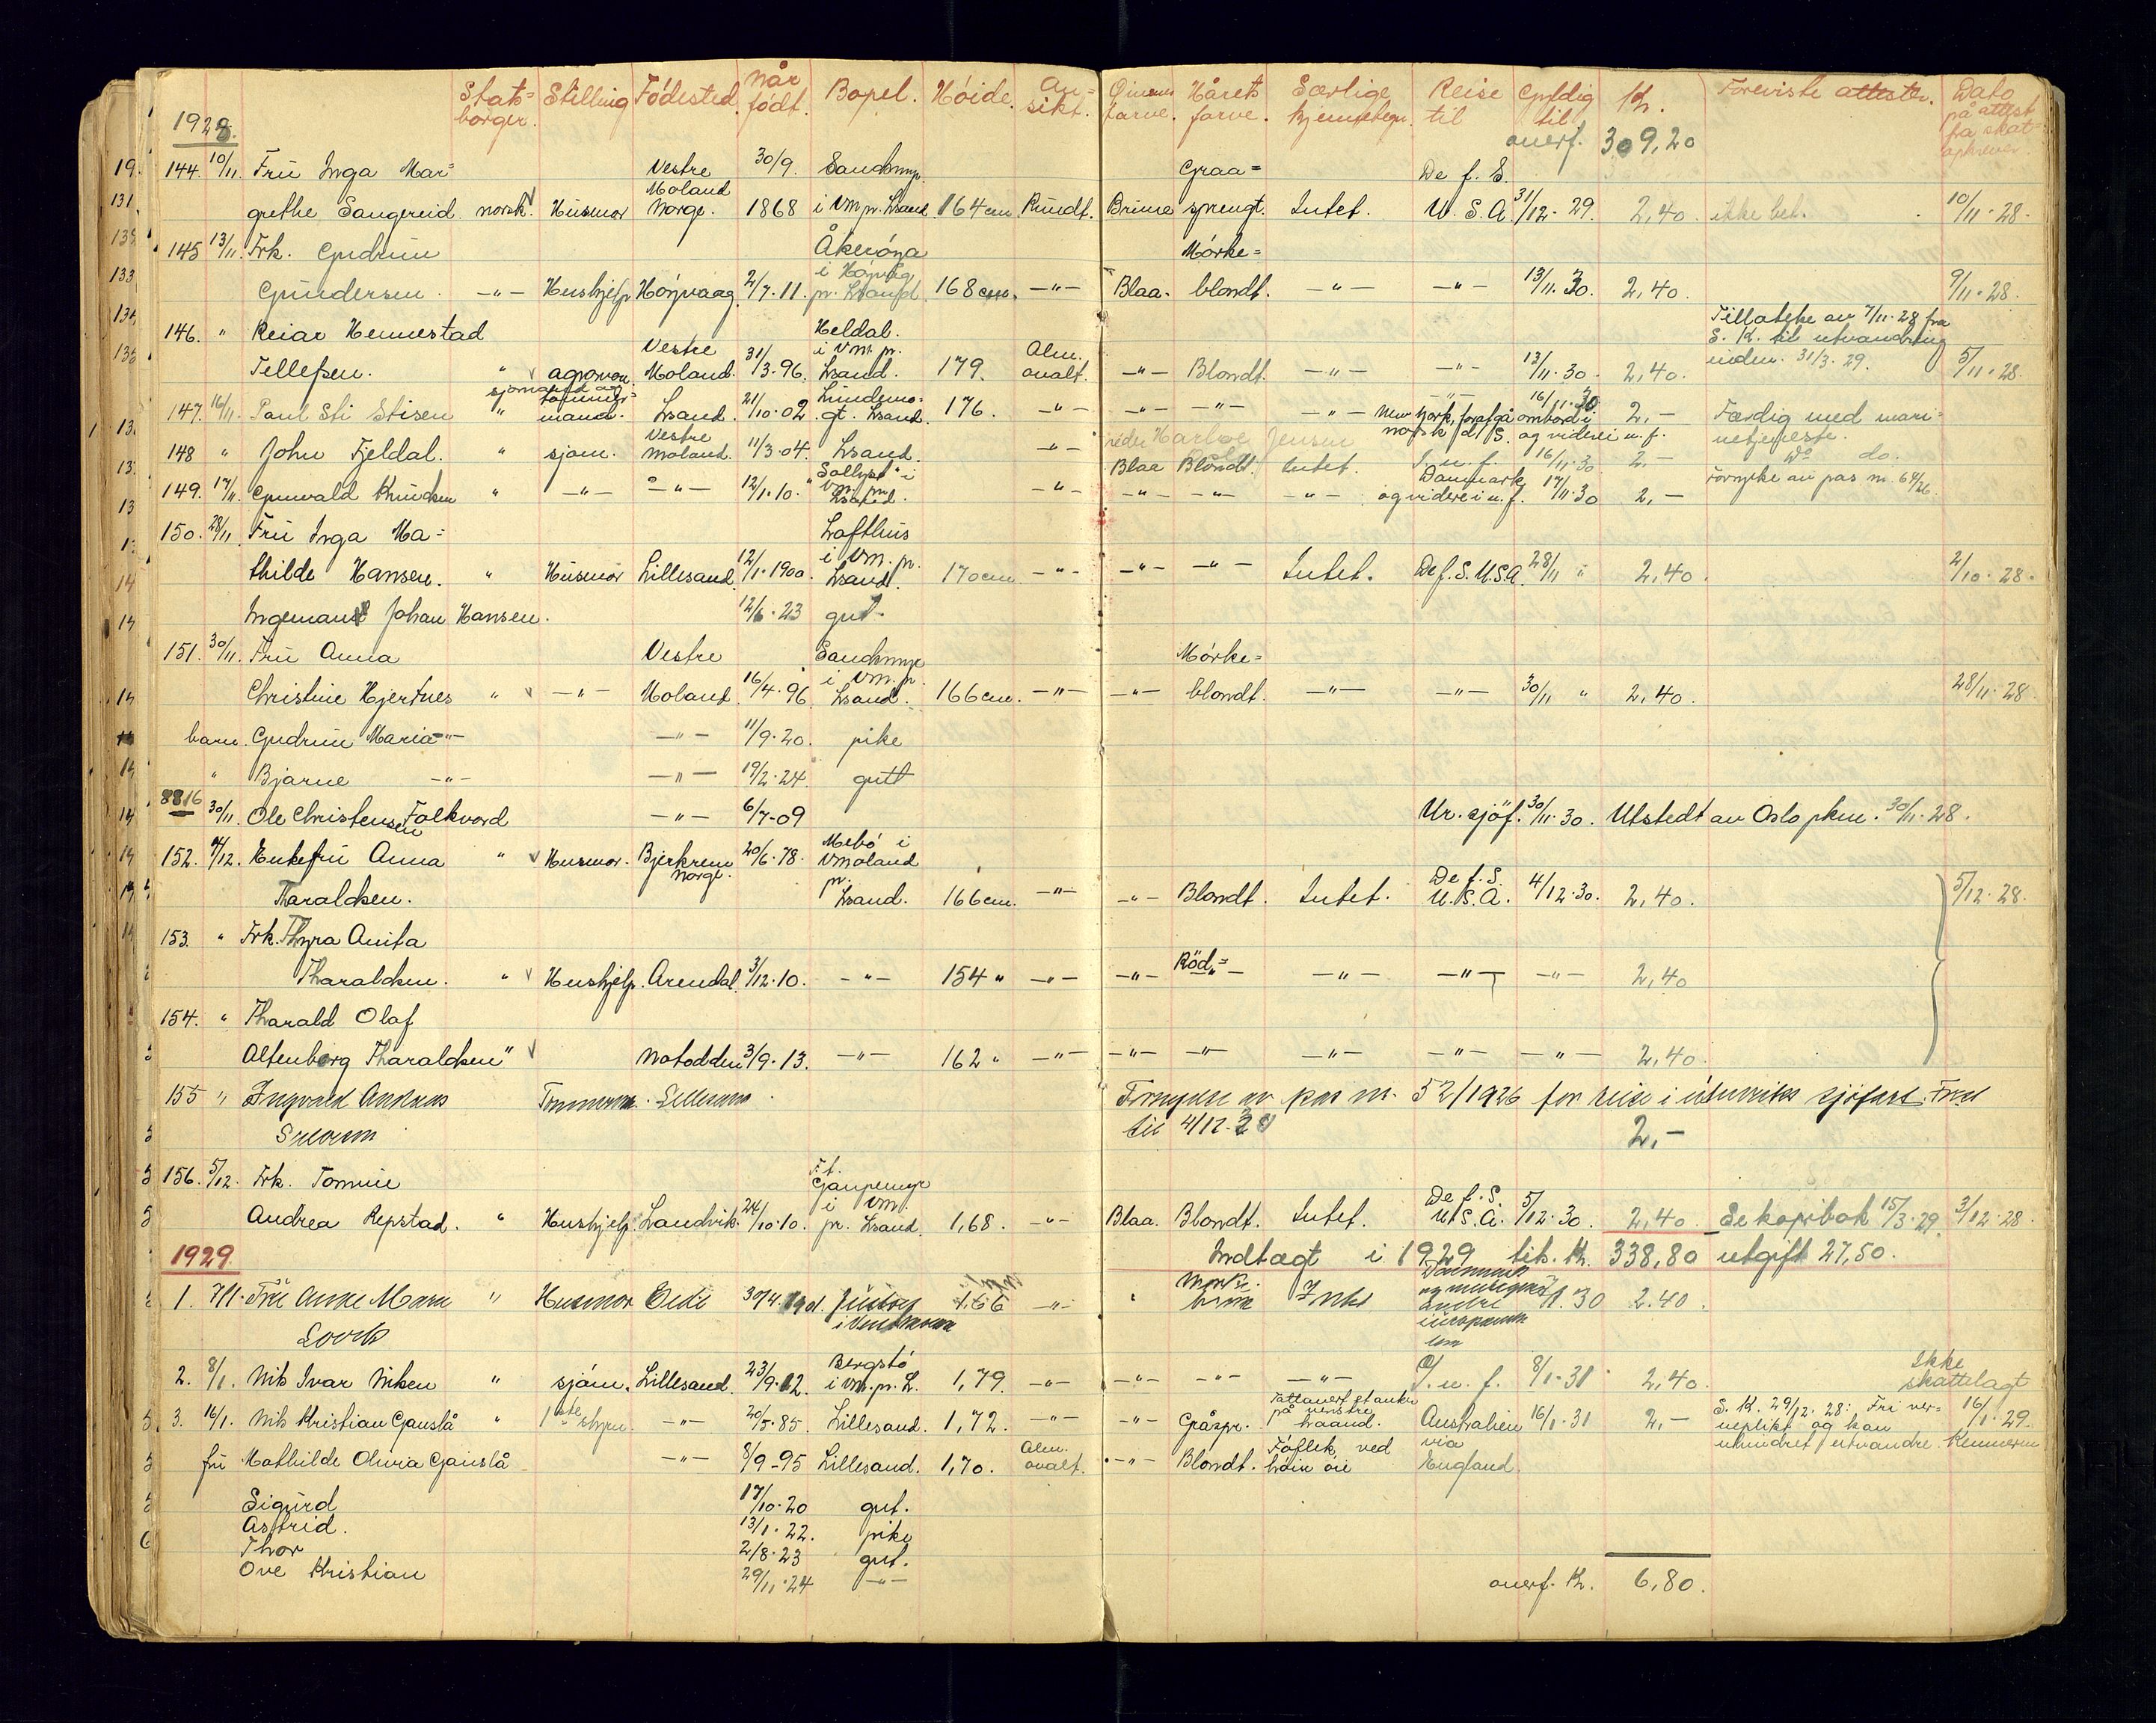 1928. Stats= borger. Stilling Födested. Når födt. Bopel. Höide. An= sikt. Öinenes farve. Hårets farve. Særlige kjennetegn. Reise til Gyldig til Kr. Foreviste attester. Dato på attest fra skat=
overf. 309,20
144. 10/11. Frü Inga Mar= Vestre 30/9. Graa= De f. S.
grethe Sangereid. norsk. Hüsmor Moland Norge. 1868 i Vm pr. Lsand. 164 cmRündt. Brüne sprengt. Intet. U. S. A. 31/12. 29. 2,40. ikke bet. 10/11. 28.
145 13/11. Frk. Gudrün Åkeröya Mörke=
Gündersen. —"— Hushjelp Höyvaag. 2/7. 11. i Höyvåg pr. Lsand. 168 cm. —"— Blaa. blondt. —"— —"— 13/11. 30. 2,40. 9/11. 28.
146. " Reiar Hennestad Vestre Heldal. Tillatelse av 7/11. 28 fra
Tellefsen. " Moland. 31/3. 96. i Vm. pr. Lsand. 179. Alm. ovalt. —"— Blondt. —"— —"— 13/11. 30. 2,40. S. K. til utvandring inden. 31/3. 29. 5/11. 28
147. 16/11. Paul Sti Stisen " sjömand og tömmer= mand. Lsand. 21/10. 02. gt. Lsand. 176. —"— —"— —"— —"— New York, foratgå ombord i norsk d/S. og videre i u. f. 16/11. 30 2,— Færdig med mari= netjeneste.
148 " John Fjeldal. " sjöm. Vestre Moland. 11/3. 04. Lsand. —"— Blaa Blondt. Intet. I. u. f. 16/11. 30 2,— do.
149. 17/11. Gunvald Knudsen " —"— —"— 12/1. 10. Sollyst" i Vm. pr. Lsand. —"— —"— —"— —"— Danmark og videre i u. f. 17/11. 30 2,— Fornyelse av pas nr. 64/26.
150. 28/11 Frü Inga Ma= Lofthus
thilde Hansen. " Hüsmor Lillesand. 12/1. 1900. i Vm. pr. Lsand. 170 cm. —"— —"— —"— Intet. De f. S. U.S.A. 28/11 " 2,40. 2/10. 28.
Ingemann Johan Hansen. 12/6. 23 gut.
151. 30/11. Frü Anna Vestre Mörke=
Christine Hjertnes " —"— Moland. 16/4. 96. i Vm. pr. Lsand. 166 cm. —"— —"— blondt. —"— —"— 30/11 " 2,40. 28/11. 28.
barn. Gudrün Maria —"— —"— 11/9. 20. pike
" Bjarne —"— —"— 19/2. 24. gutt
8816 30/11. Ole Christensen Folkvord —"— 6/7-09 Ur. sjöf. 30/11. 30. Utstedt av Oslo pkm. 30/11. 28.
152. 4/12. Enkefrü Anna " Husmor. Bjerkrem Norge. 20/6. 78. Mebö i Vmoland
Tharaldsen. pr. Lsand. 166 cm. —"— —"— Blondt. Intet. De f. S. U.S.A. 4/12. 30. 2,40. 5/12. 28.
153. " Frk. Thyra Anita
Tharaldsen. " Hushjelp. Arendal. 3/12. 10. —"— 154 " —"— —"— Röd= —"— —"— —"— 2,40
154. " Tharald Olaf
Altenborg Tharaldsen " Notodden 3/9. 13. —"— 162 " —"— —"— —"— —"— —"— —"— 2,40.
155 " Ingvald Andreas Tömmerm. Lillesand. Fornyelse av pas nr. 52/1926 for reise i utenriks sjöfart.
til 4/12. 2,—
156. 5/12. Frk. Tomine
Andrea Repstad. " Hushjelp. Landvik. 24/10. 10. Gaupemyr i Vm. pr. Lsand. 1,68. —"— Blaa. Blondt. Intet. De f. S. U.S.A. 5/12. 30. 2,40. Se kopibok 15/3. 29. 3/12. 28.
1929. Indtagt i 1929 tils. Kr. 338,80 utgift 27,50.
1. 7/1. Frü Anne Marie " Husmor Eide 30/4 1901. 1.66 —"— " Mörke. brun Intet Danmark og muligens andre europeiske land 7/1. 30 2.40.
2. 8/1. Nils Ivar Nilsen " sjöm. Lillesand. 23/9. 12. Bergstö i Vm. pr. L. 1,79. —"— —"— —"— —"— I. u. f. 8/1. 31 2,40. Ikke skattelagt
3. 16/1. Nils Kristian Gauslå " 1ste styrm. —"— 20/5. 85. Lillesand. 1,72. —"— —"— Gråspr. Tattovert et anker på venstre haand. Australien 16/1. 31 2,— S. K. 29/12. 28: Fri ver= neplikt og kan uhindret utvandre. 16/1. 29.
frü Mathilde Olivia Gauslå —"— 8/9-95 Lillesand. 1,70. Alm. ovalt. —"— Blondt. Föflek ved höire öie via England.
Sigurd 17/10. 20 gut.
Astrid. 13/1. 22. pike
Thor 2/8. 23 gut.
Ove Kristian 29/11. 24 —"—
overf. Kr. 6,80.